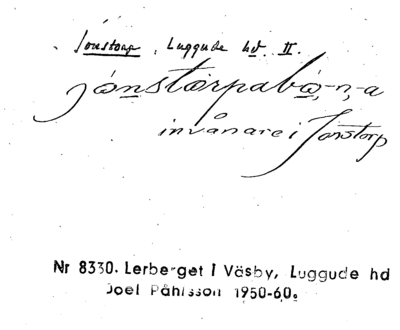 Jonstorp, Luggude hd. II.
jónstorpabó̱,-n,-a
invånare i Jonstorp
Nr 8330. Lerberget i Väsby, Luggude hd
Joel Påhlsson 1950-60.